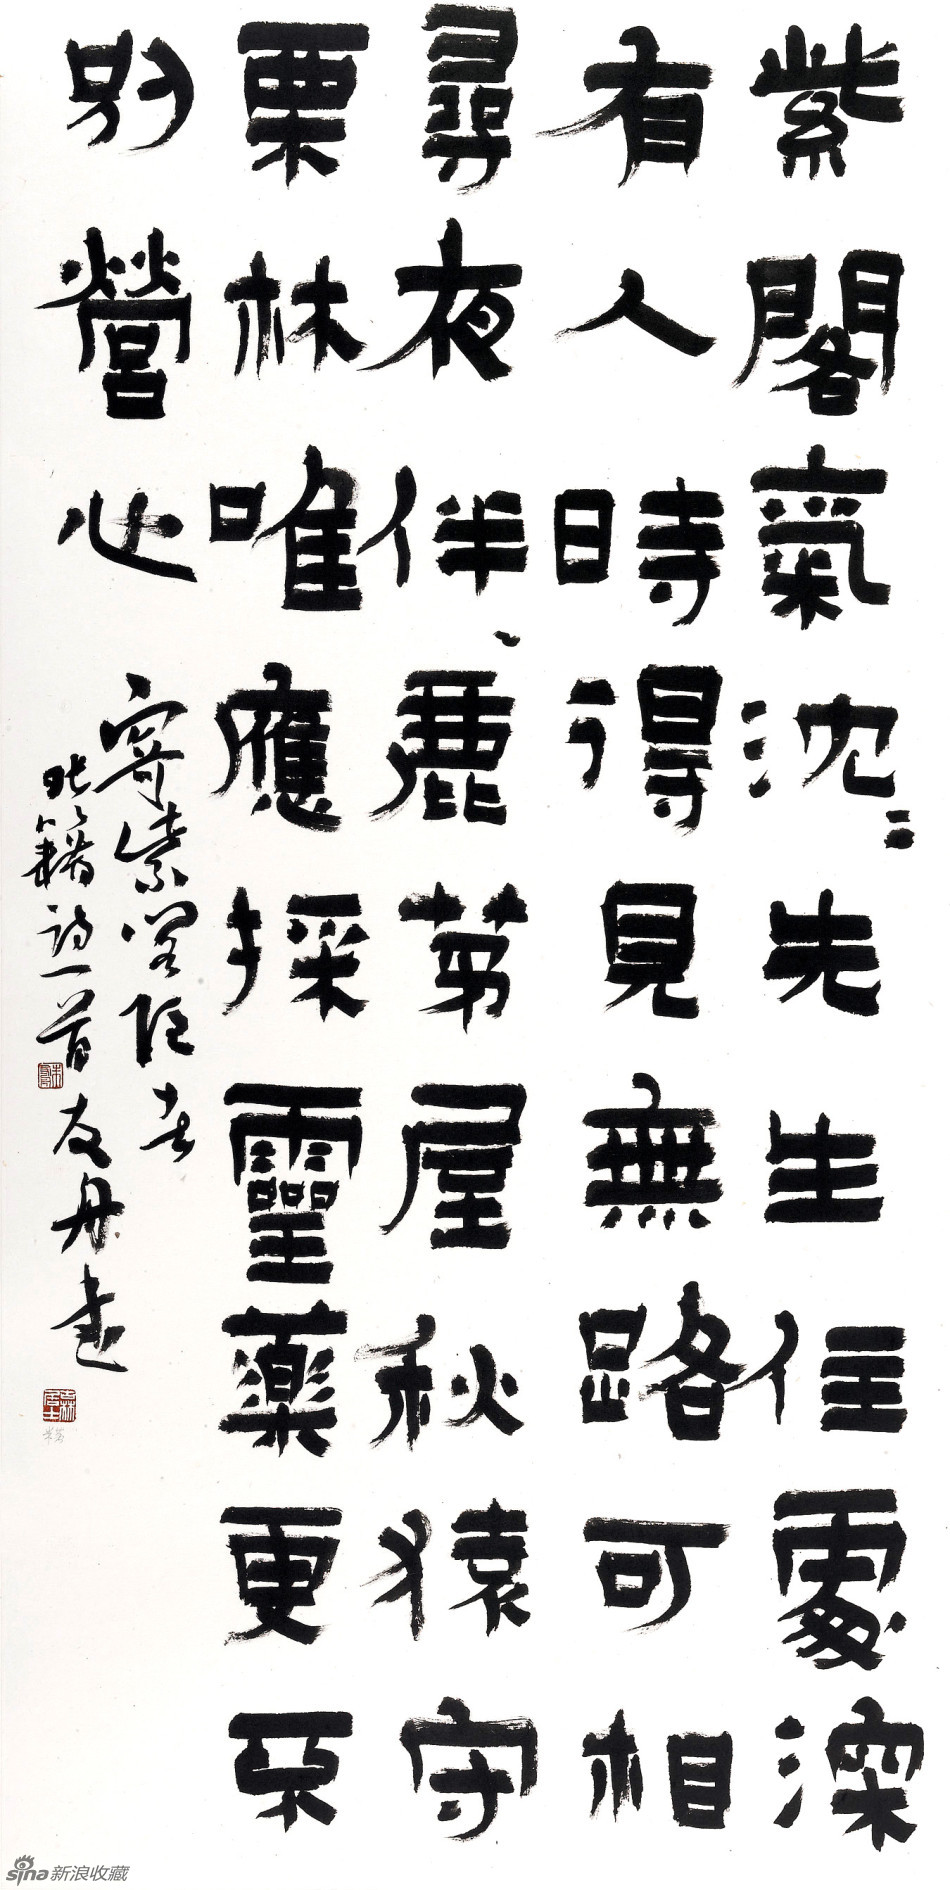 紫閣氣沈〻先生住處深
有人時得見無路可相
尋夜伴鹿茅屋秋猿守
栗林唯應採靈藥更不
別營心
寄紫閣隱者
張籍詩一首友丹書
sina新浪收藏